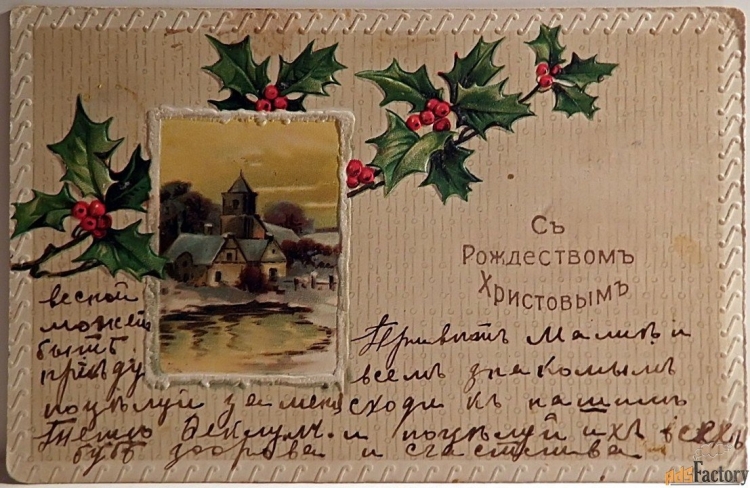 Съ
Рождествомъ
Христовымъ
весной
можетъ
быть
приѣду
Привѣтъ Малинѣ и
всемъ знакомымъ
поцѣлуй за меня сходи къ нашимъ
и поцѣлуй ихъ всехъ
будь здорова и счастлива
ArtsFactory